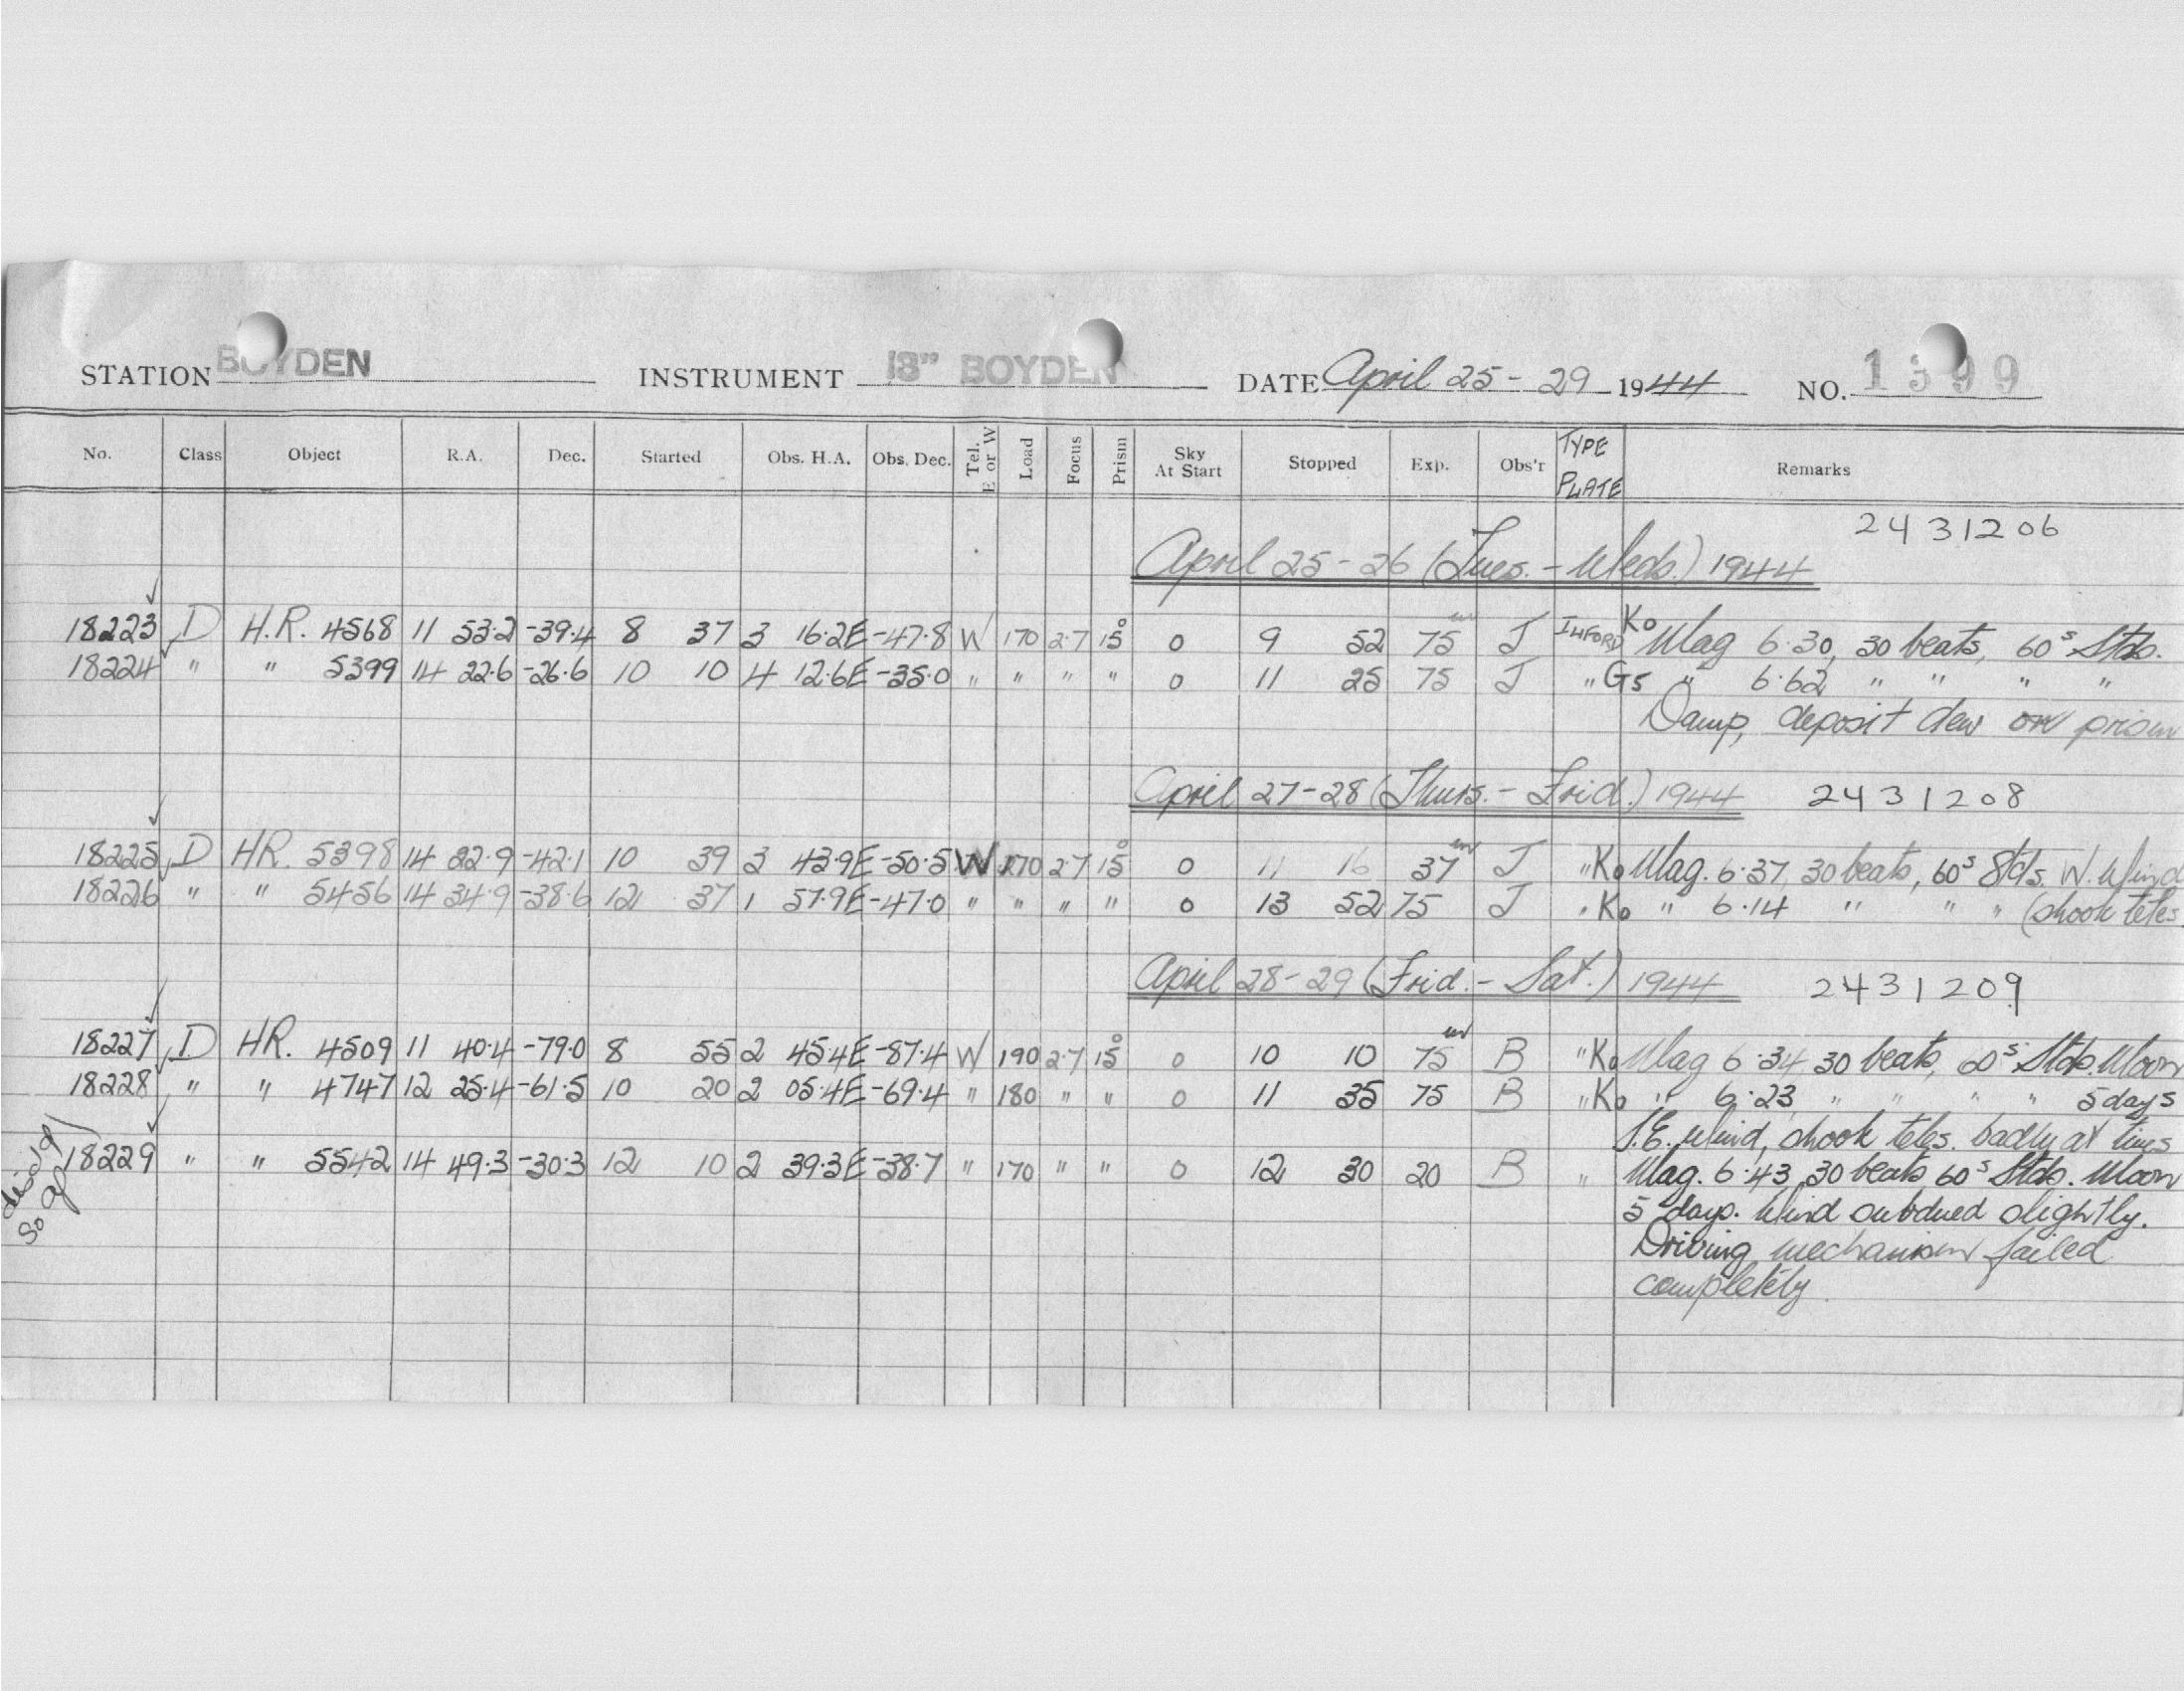 STATION BOYDEN INSTRUMENT 13" BOYDEN DATE April 25 - 29 1944 NO. 1399
No. Class Object R.A. Dec. Started Obs. H.A. Obs. Dec. Tel. E or W Load Focus Prism Sky At Start Stopped Exp. Obs'r TYPE PLATE Remarks
2431206
April 25-26 (Tues. - Weds.) 1944
18223 D H.R. 4568 11 53.2 -39.4 8 37 3 16.2E -47.8 W 170 2.7 15° 0 9 52 75m J ILFORD K0 Mag 6.30, 30 beats, 60s Stds.
18224 " " 5399 14 22.6 -26.6 10 10 4 12.6E -35.0 " " " " 0 11 25 75 J " G5 " 6.62 " " " "
Damp, deposit dew on prism
April 27-28 (Thurs. - Frid.) 1944 2431208
18225 D HR. 5398 14 22.9 -42.1 10 39 3 43.9E -50.5 W 170 2.7 15° 0 11 16 37m J " K0 Mag. 6.37, 30 beats, 60s Stds, W. Wind
18226 " " 5456 14 34.9 -38.6 12 37 1 57.9E -47.0 " " " " 0 13 52 75 J " K0 " 6.14 " " " (shook teles.
April 28-29 (Frid. - Sat.) 1944 2431209
18227 D HR. 4509 11 40.4 -79.0 8 55 2 45.4E -87.4 W 190 2.7 15° 0 10 10 75m B " K0 Mag 6.34 30 beats, 60s Stds. Moon
18228 " " 4747 12 25.4 -61.5 10 20 2 05.4E -69.4 " 180 " " 0 11 35 75 B " K0 " 6.23 " " " " 5 days
S.E. Wind, shook teles. badly at times
18229 " " 5542 14 49.3 -30.3 12 10 2 39.3E -38.7 " 170 " " 0 12 30 20 B " Mag. 6.43, 30 beats 60s Stds. Moon
5 days. Wind subdued slightly.
Driving mechanism failed
completely.